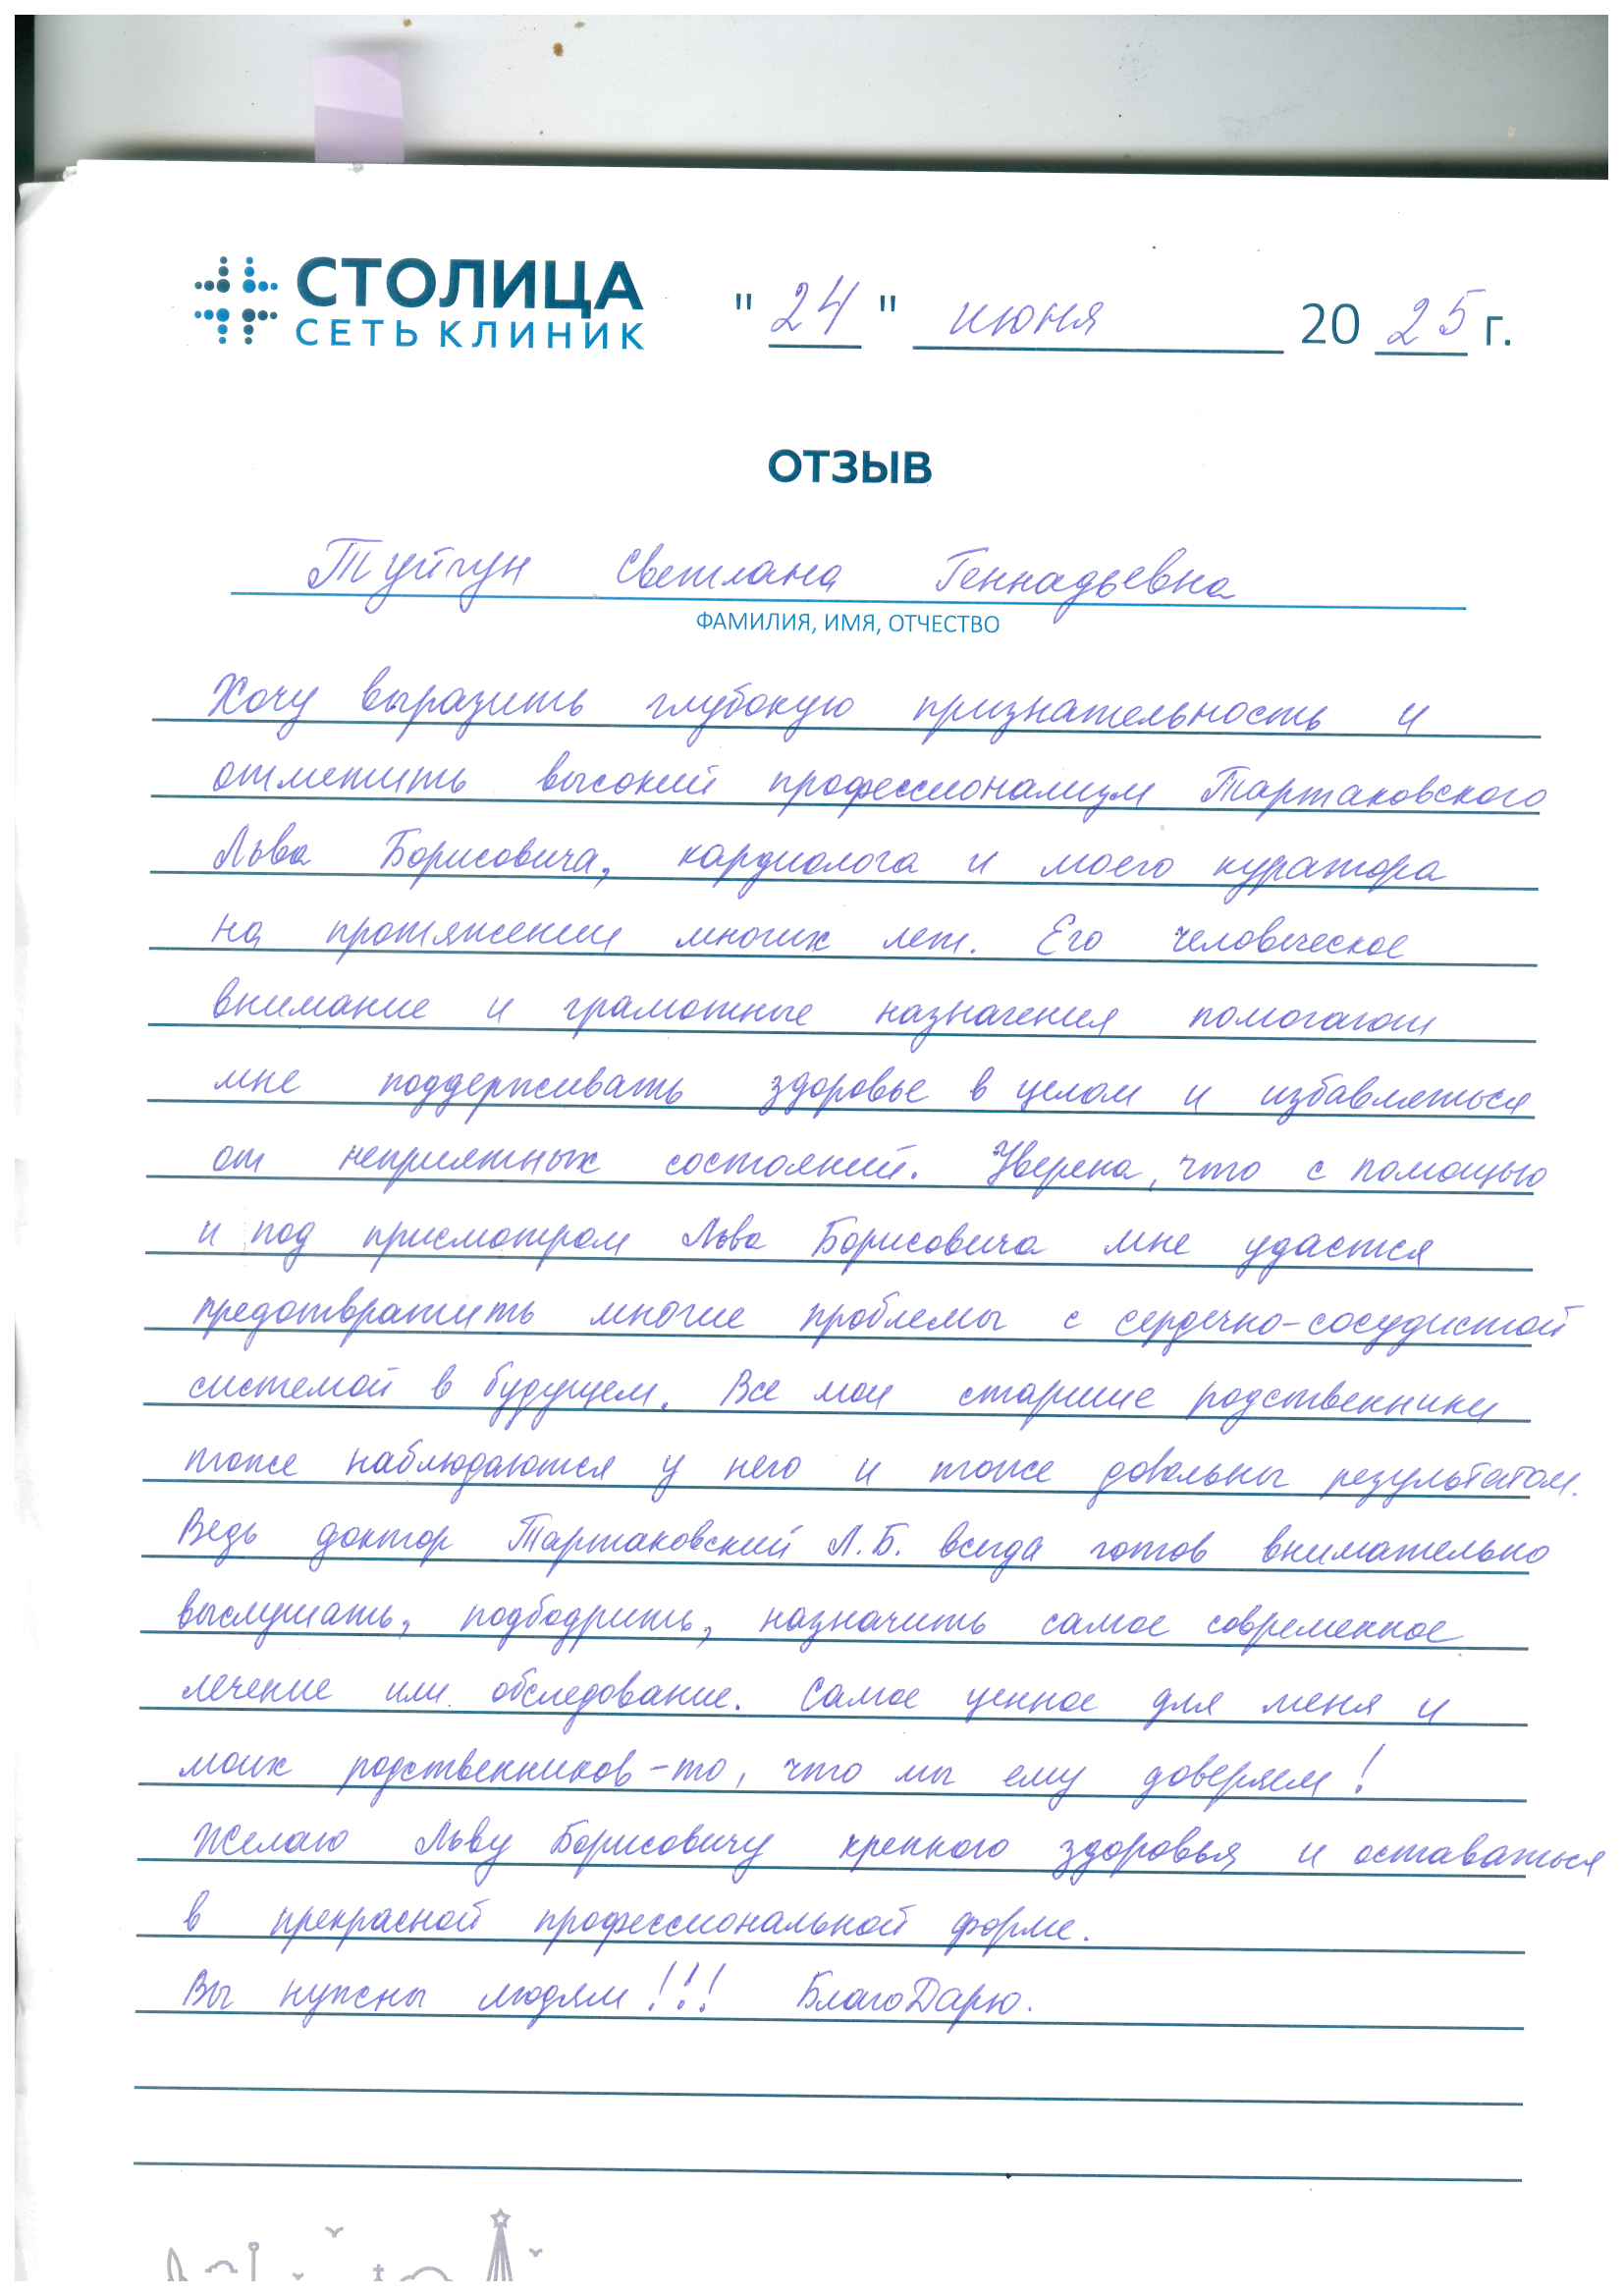 СТОЛИЦА
СЕТЬ КЛИНИК
"24" июня 2025 г.
ОТЗЫВ
Туйгун Светлана Геннадьевна
ФАМИЛИЯ, ИМЯ, ОТЧЕСТВО
Хочу выразить глубокую признательность и
отметить высокий профессионализм Тартаковского
Льва Борисовича, кардиолога и моего куратора
на протяжении многих лет. Его человеческое
внимание и грамотные назначения помогают
мне поддерживать здоровье в целом и избавляться
от неприятных состояний. Уверена, что с помощью
и под присмотром Льва Борисовича мне удастся
предотвратить многие проблемы с сердечно-сосудистой
системой в будущем. Все мои старшие родственники
тоже наблюдаются у него и тоже довольны результатом.
Ведь доктор Тартаковский Л.Б. всегда готов внимательно
выслушать, подбодрить, назначить самое современное
лечение или обследование. Самое ценное для меня и
моих родственников - то, что мы ему доверяем!
Желаю Льву Борисовичу крепкого здоровья и оставаться
в прекрасной профессиональной форме.
Вы нужны людям!!! БлагоДарю.